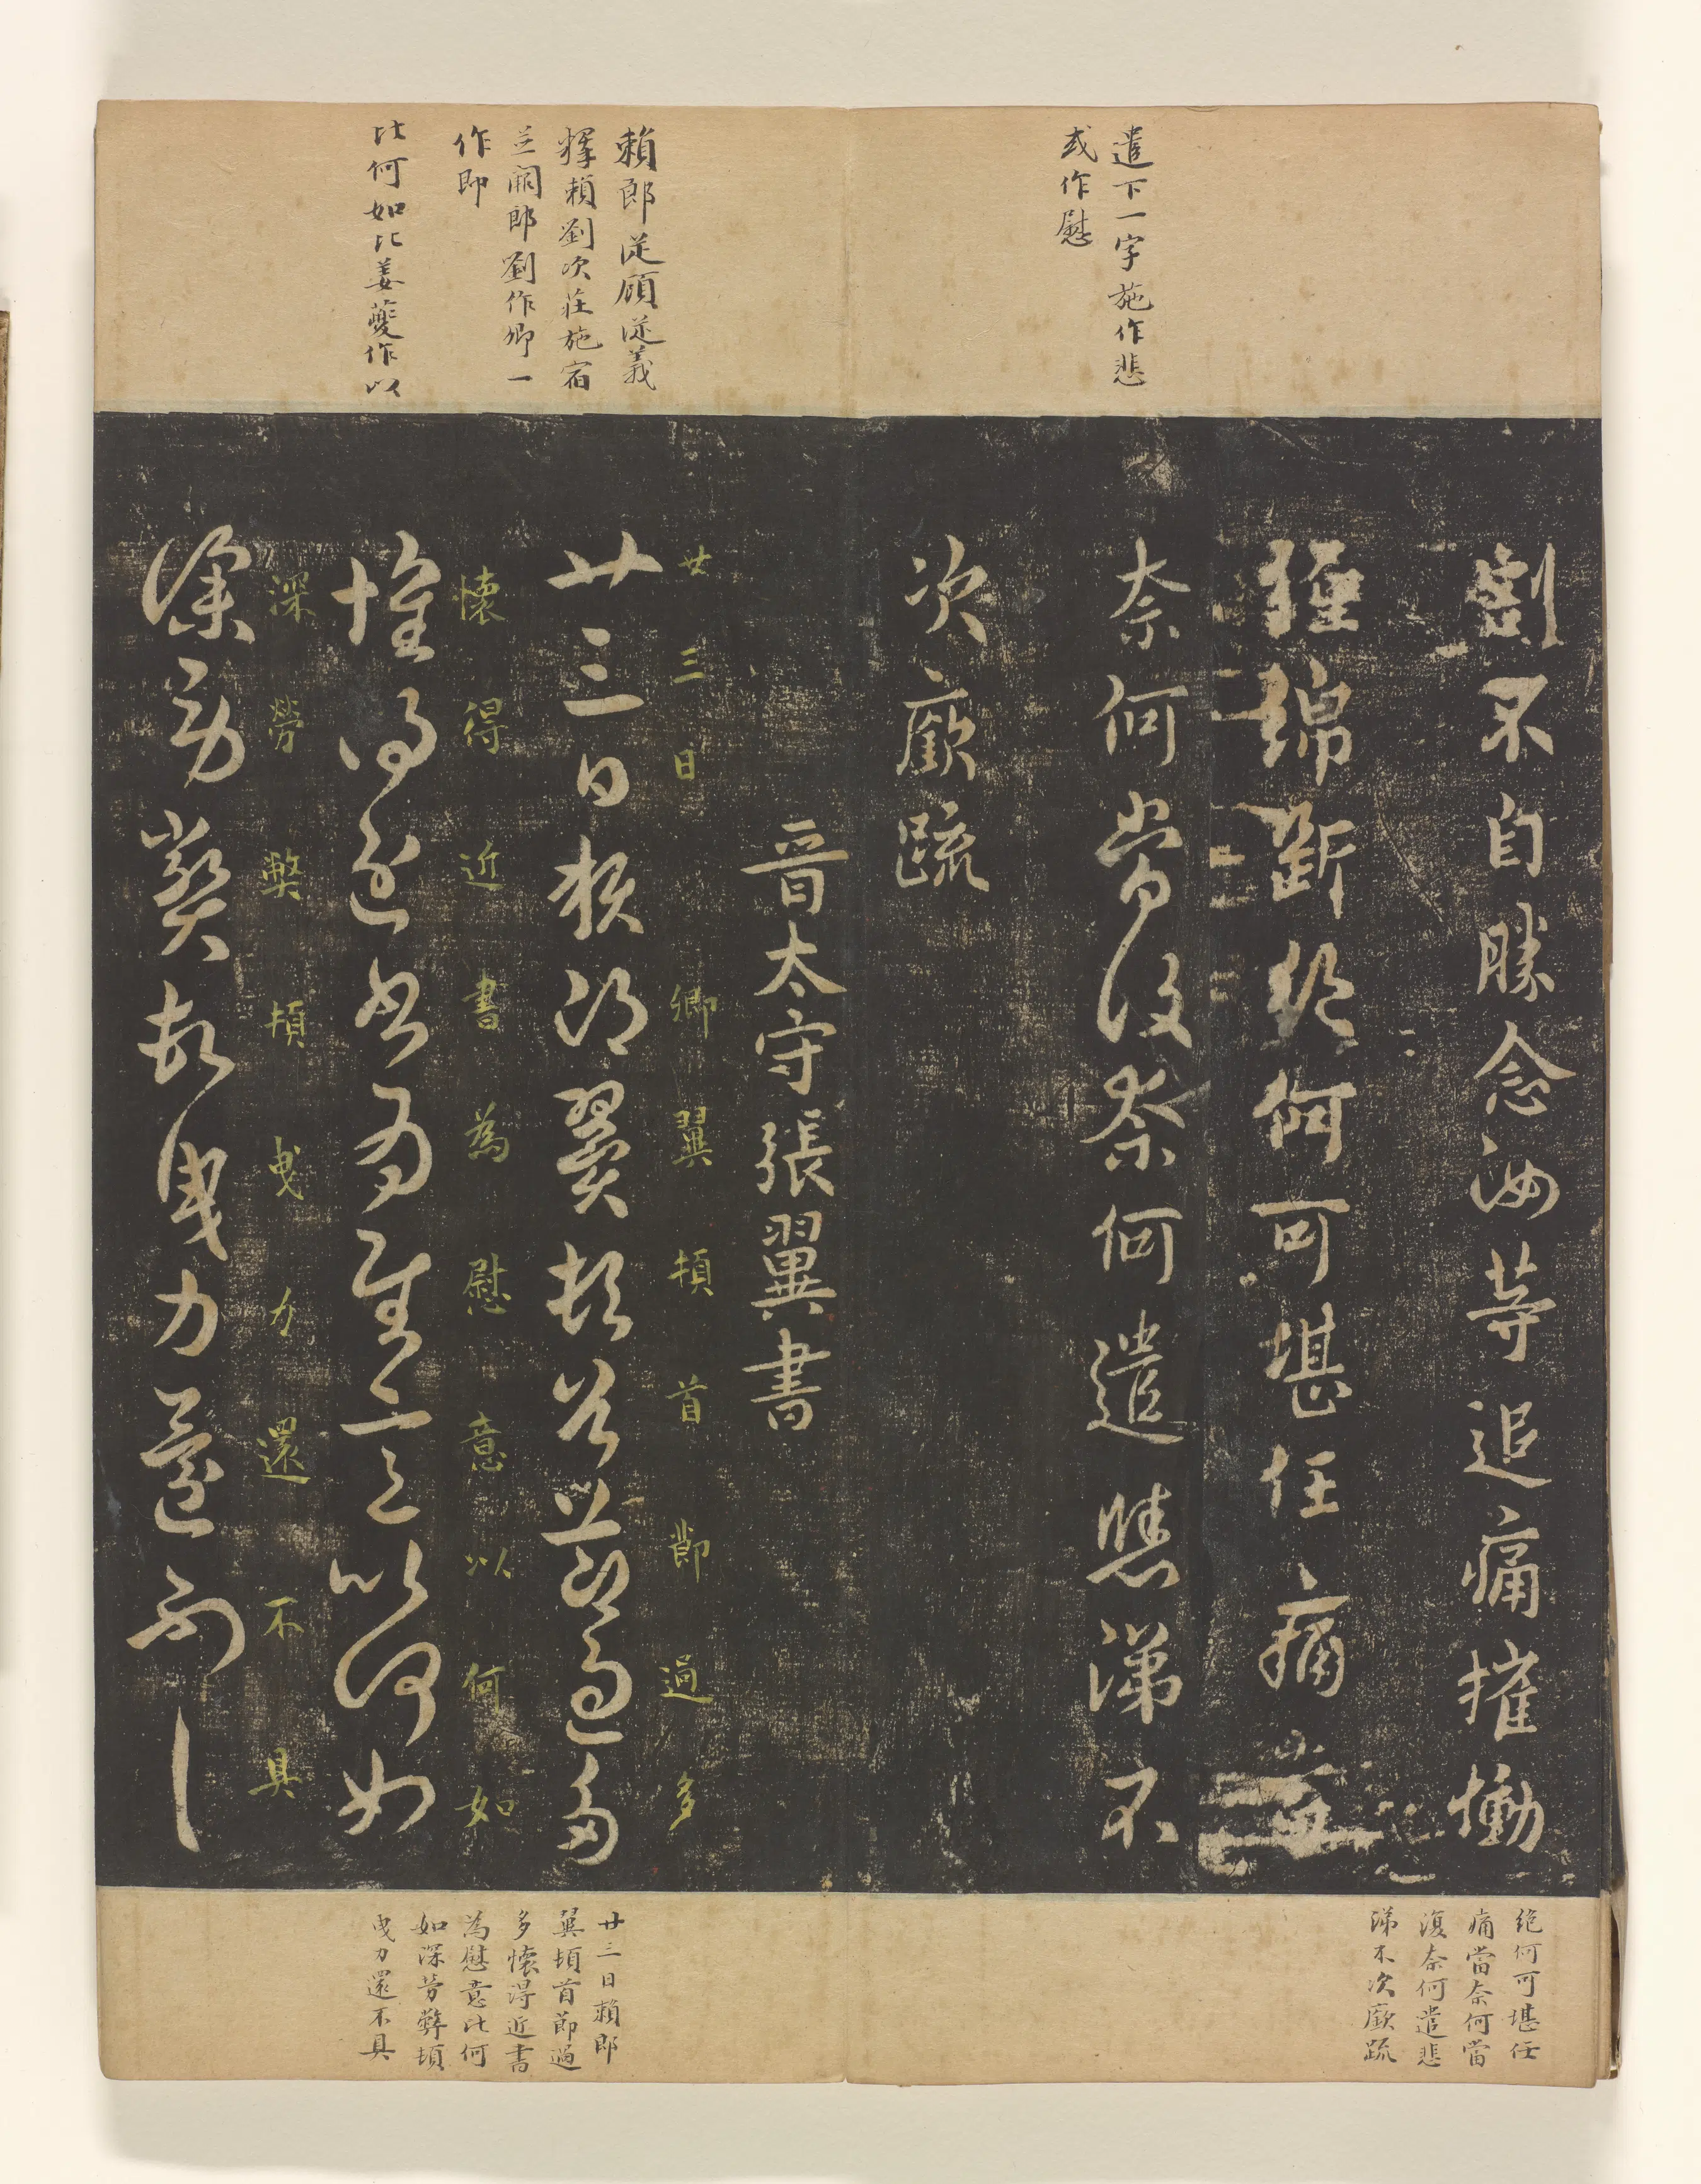 遣下一字施作悲
或作慰
賴郎從顧從義
釋賴劉次莊施宿
並闕郎劉作卿一
作即
比何如比姜夔作以
割不自勝念汝等追痛摧慟
纏綿斷絕何可堪任痛當
奈何當復奈何遣悲涕不
次廞疏
晉太守張翼書
廿三日卿翼頓首節過多
廿三日賴郎翼頓首節過多
懷得近書為慰意以何如
懷得近書為慰意以何如
深勞弊頓曳力還不具
深勞弊頓曳力還不具
絕何可堪任
痛當奈何當
復奈何遣悲
涕不次廞疏
廿三日賴郎
翼頓首節過
多懷得近書
為慰意比何
如深勞弊頓
曳力還不具